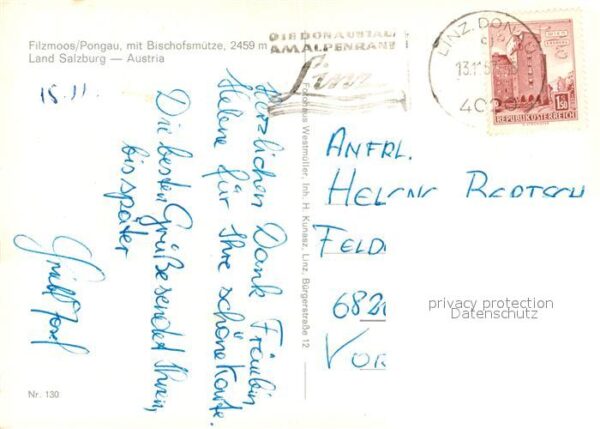 Filzmoos/Pongau, mit Bischofsmütze, 2459 m
Land Salzburg — Austria
15.11.
Herzlichen Dank Fräulein
Helene für Ihre schöne Karte.
Die besten Grüße sendet Ihnen,
bis später
Josef
Nr. 130
Fotohaus Westmüller, Inh. H. Kunasz, Linz, Bürgerstraße 12
DIE DONAUSTADT
AM ALPENRAND
Linz
LINZ, DONAU
4020
1.50
REPUBLIK ÖSTERREICH
AN FRL.
HELENE
FELD
682
VOR
privacy protection
Datenschutz